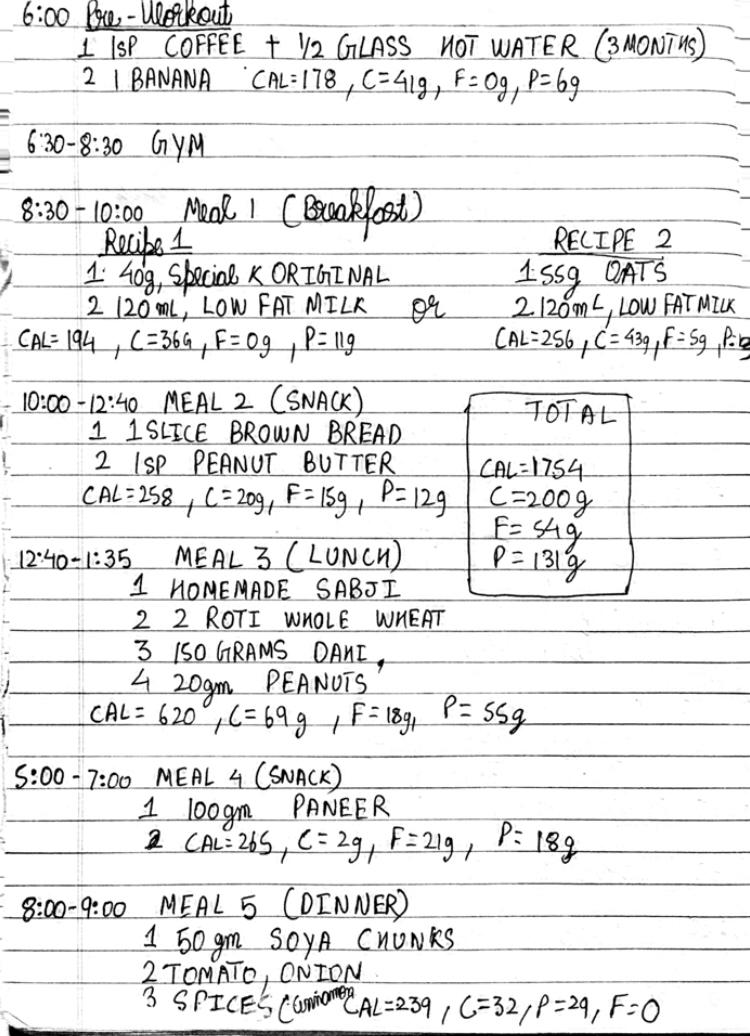 6:00 Pre-Workout
1 1SP COFFEE + 1/2 GLASS HOT WATER (3 MONTHS)
2 1 BANANA CAL=178, C=41g, F=0g, P=6g
6:30-8:30 GYM
8:30-10:00 Meal 1 (Breakfast)
Recipe 1
1. 40g, Special K ORIGINAL
2 120mL, LOW FAT MILK
CAL=194, C=36G, F=0g, P=11g
or
RECIPE 2
1. 55g OATS
2. 120mL, LOW FAT MILK
CAL=256, C=43g, F=5g,
10:00-12:40 MEAL 2 (SNACK)
1 1 SLICE BROWN BREAD
2 1SP PEANUT BUTTER
CAL=258, C=20g, F=15g, P=12g
TOTAL
CAL=1754
C=200g
F=54g
P=131g
12:40-1:35 MEAL 3 (LUNCH)
1 HOMEMADE SABJI
2 2 ROTI WHOLE WHEAT
3 150 GRAMS DAHI,
4 20gm PEANUTS
CAL=620, C=69g, F=18g, P=55g
5:00-7:00 MEAL 4 (SNACK)
1 100gm PANEER
2 CAL=265, C=2g, F=21g, P=18g
8:00-9:00 MEAL 5 (DINNER)
1 50 gm SOYA CHUNKS
2 TOMATO, ONION
3 SPICES (Cinnamon CAL=239, C=32, P=29, F=0